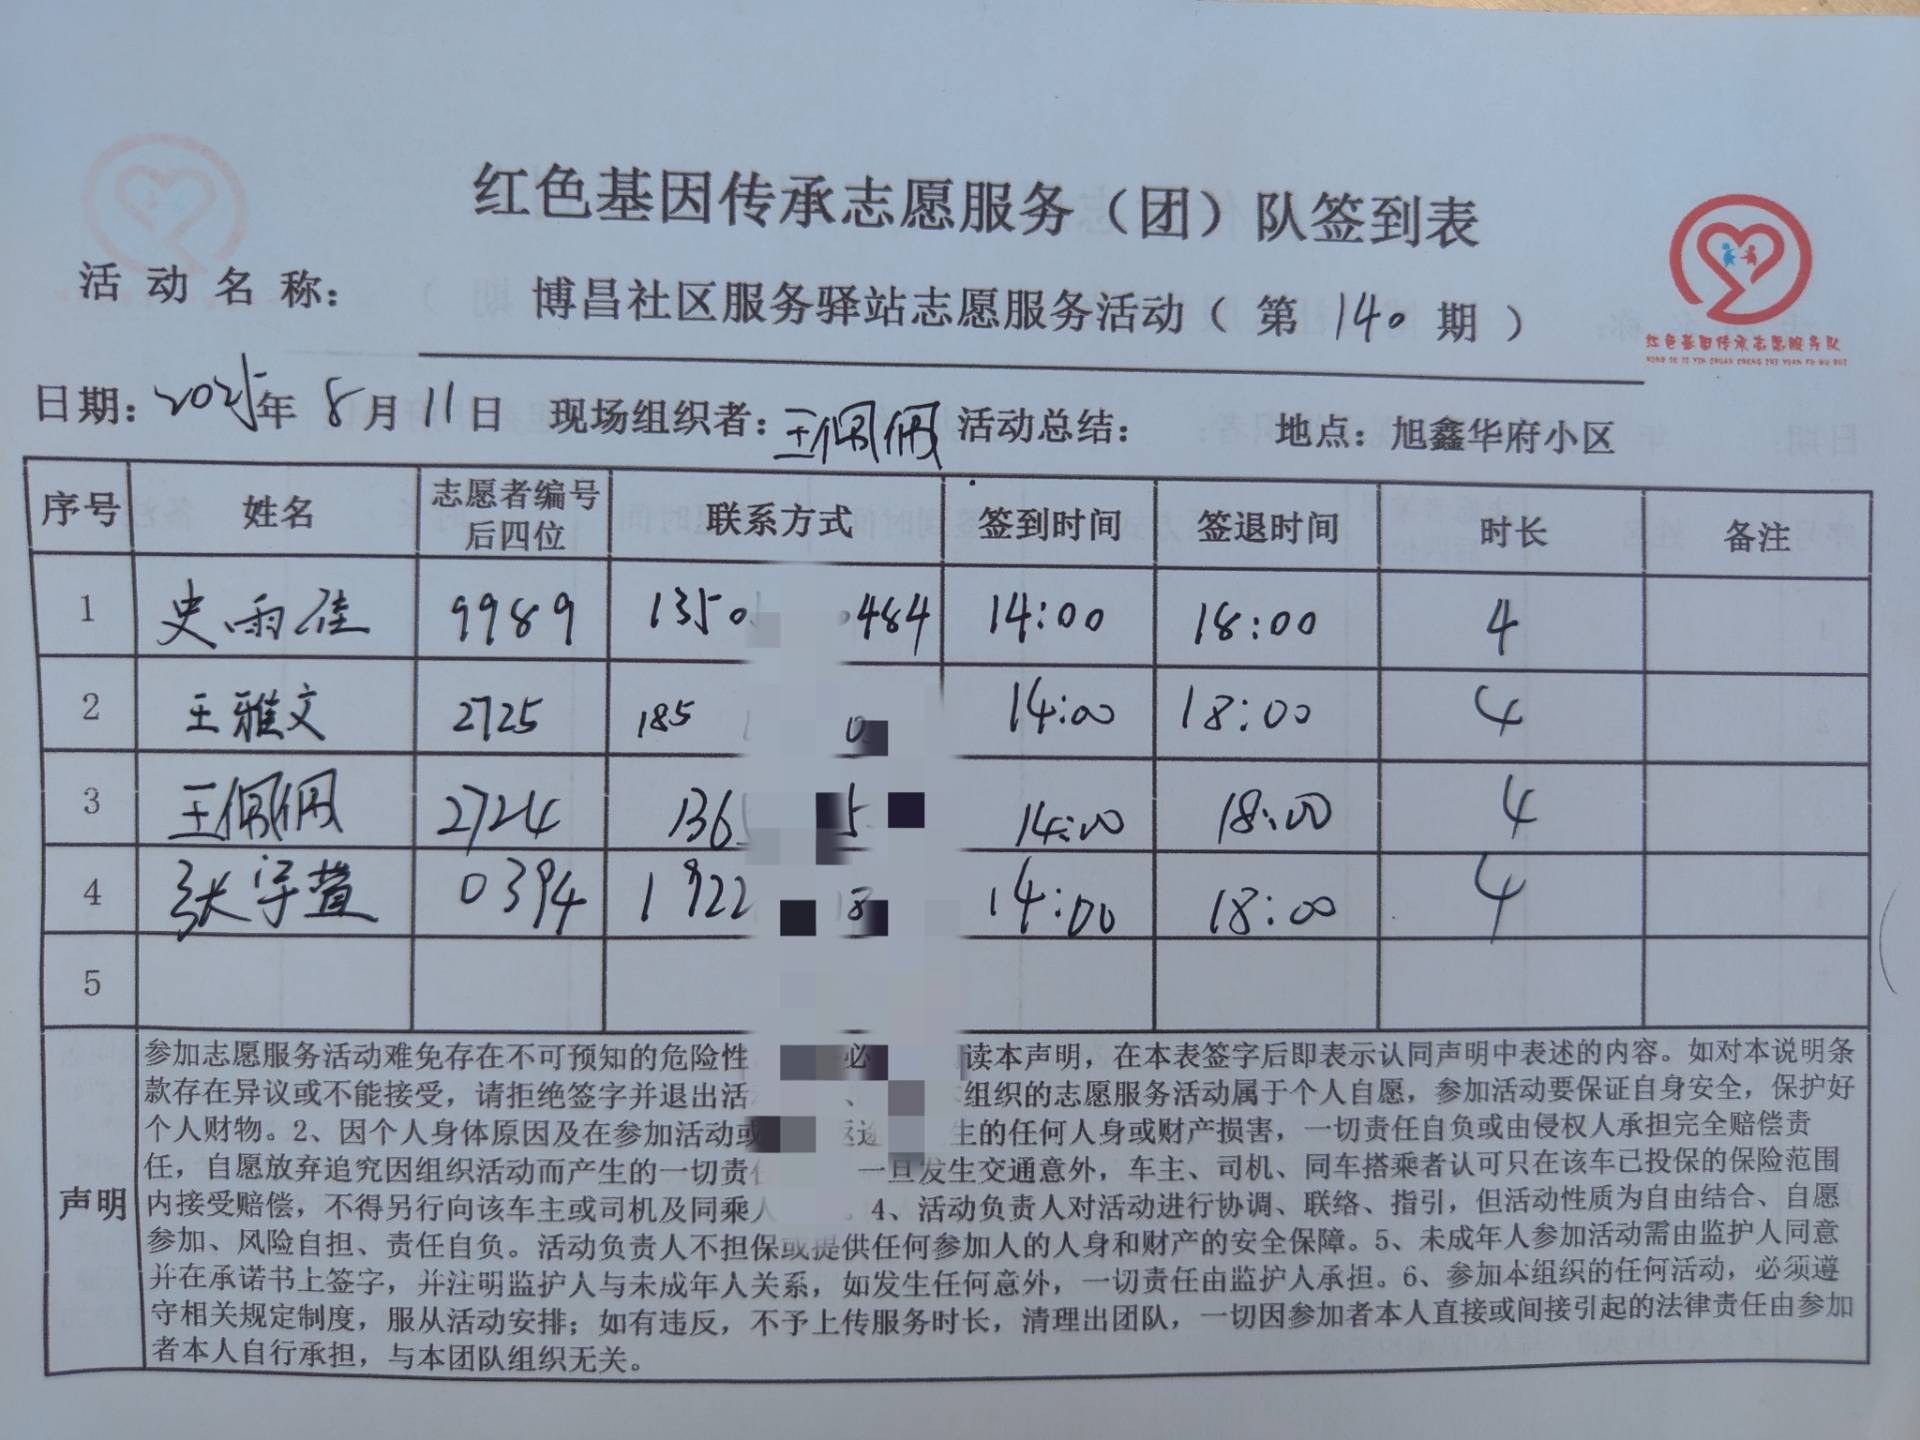 红色基因传承志愿服务（团）队签到表
活动名称： 博昌社区服务驿站志愿服务活动（第140期）
红色基因传承志愿服务队
HONG SE JI YIN CHUAN CHENG ZHI YUAN FU WU DUI
日期：2025年8月11日 现场组织者：王佩佩 活动总结： 地点：旭鑫华府小区
序号 姓名 志愿者编号后四位 联系方式 签到时间 签退时间 时长 备注
1 史雨佳 9989 1350 484 14:00 18:00 4
2 王雅文 2725 185 0 14:00 18:00 4
3 王佩佩 2724 136 5 14:00 18:00 4
4 张宇萱 0394 1922 18 14:00 18:00 4
5
声明
参加志愿服务活动难免存在不可预知的危险性 必 读本声明，在本表签字后即表示认同声明中表述的内容。如对本说明条
款存在异议或不能接受，请拒绝签字并退出活 、 组织的志愿服务活动属于个人自愿，参加活动要保证自身安全，保护好
个人财物。2、因个人身体原因及在参加活动或 返途 生的任何人身或财产损害，一切责任自负或由侵权人承担完全赔偿责
任，自愿放弃追究因组织活动而产生的一切责任 一旦发生交通意外，车主、司机、同车搭乘者认可只在该车已投保的保险范围
内接受赔偿，不得另行向该车主或司机及同乘人 。4、活动负责人对活动进行协调、联络、指引，但活动性质为自由结合、自愿
参加、风险自担、责任自负。活动负责人不担保或提供任何参加人的人身和财产的安全保障。5、未成年人参加活动需由监护人同意
并在承诺书上签字，并注明监护人与未成年人关系，如发生任何意外，一切责任由监护人承担。6、参加本组织的任何活动，必须遵
守相关规定制度，服从活动安排；如有违反，不予上传服务时长，清理出团队，一切因参加者本人直接或间接引起的法律责任由参加
者本人自行承担，与本团队组织无关。